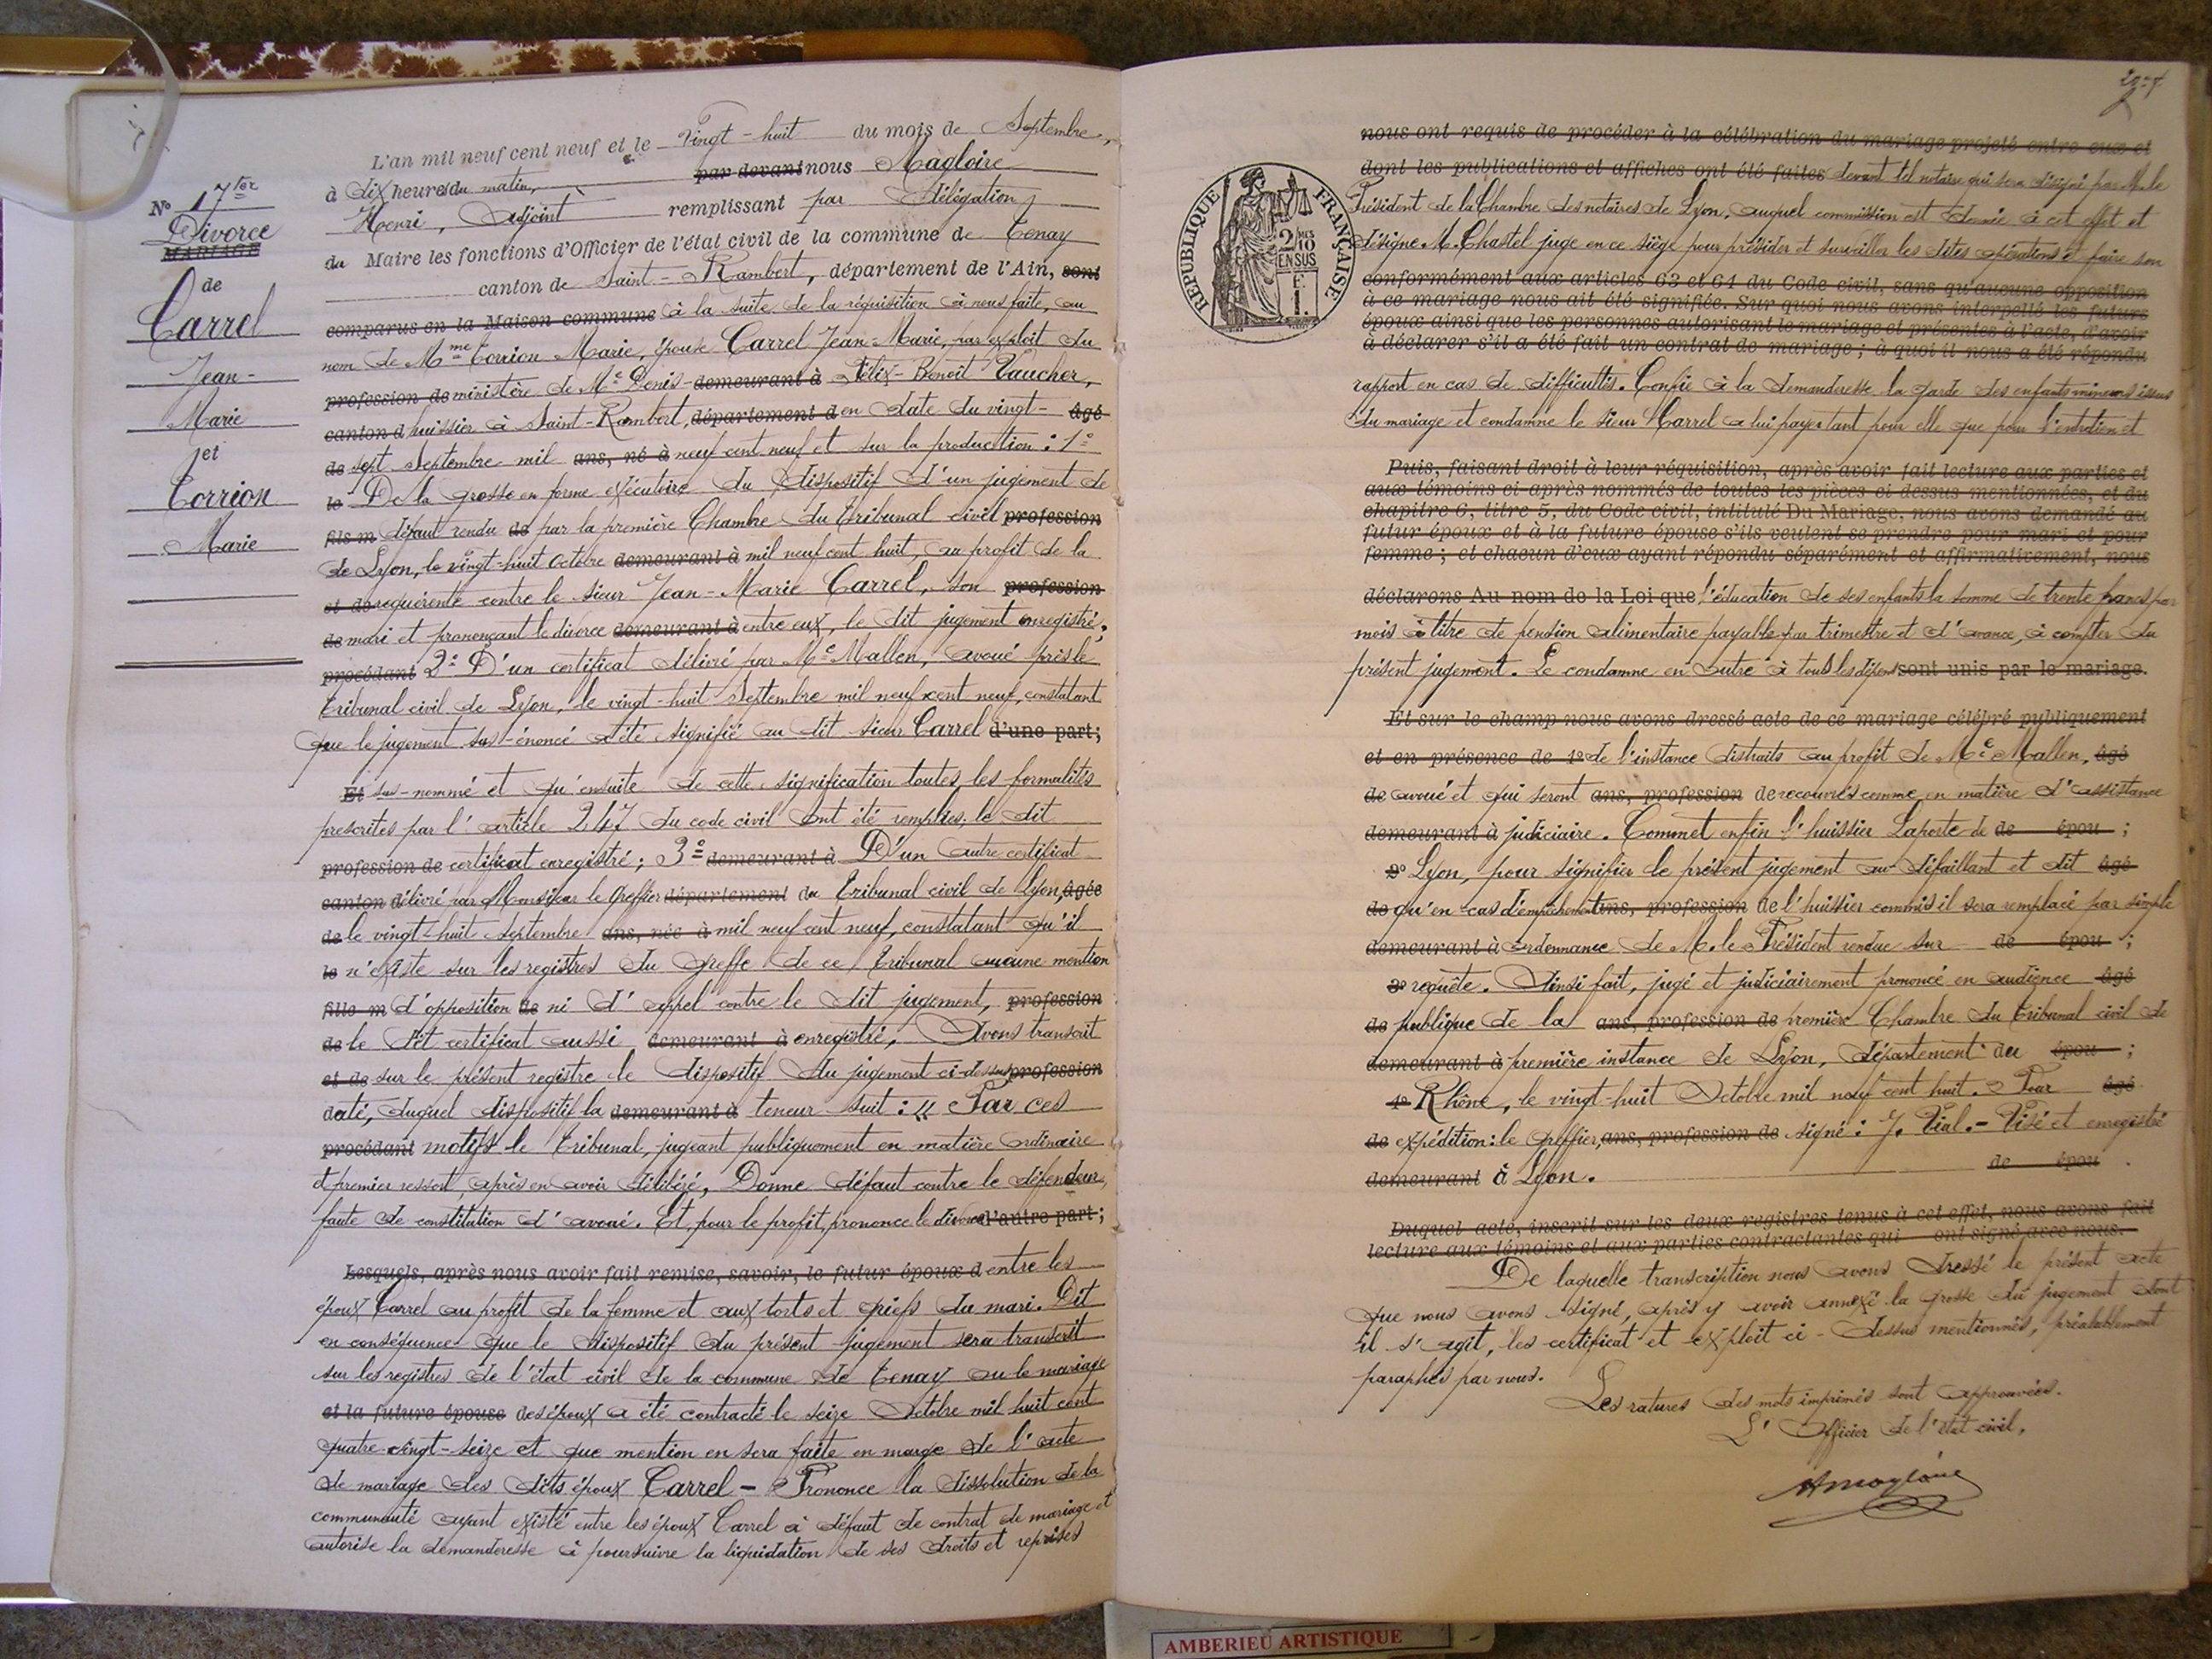 L'an mil neuf cent neuf et le vingt-huit du mois de Septembre,
à dix heures du matin, par devant nous Magloire
Henri, Adjoint remplissant par délégation
du Maire les fonctions d'Officier de l'état civil de la commune de Tenay
canton de Saint-Rambert, département de l'Ain, sont
comparus en la Maison commune à la suite de la réquisition à nous faite, au
nom de Mme Torrion Marie, épouse Carrel Jean-Marie, par exploit du
profession de ministère de Me Denis- demeurant à Félix-Benoît Vaucher,
canton d huissier à Saint-Rambert, département d en date du vingt- âgé
de sept Septembre mil ans, né à neuf cent neuf et sur la production : 1°
le De la grosse en forme exécutoire du dispositif d'un jugement de
fils m défaut rendu de par la première Chambre du Tribunal civil profession
de Lyon, le vingt-huit Octobre demeurant à mil neuf cent huit, au profit de la
et de requérente contre le sieur Jean-Marie Carrel, son profession
de mari et prononçant le divorce demeurant à entre eux, le dit jugement enregistré;
procédant 2° D'un certificat délivré par Me Mallen, avoué près le
Tribunal civil de Lyon, le vingt-huit Septembre mil neuf cent neuf, constatant
que le jugement sus-énoncé a été signifié au dit sieur Carrel d'une part;
Et sus-nommé et qu'ensuite de cette signification toutes les formalités
prescrites par l'article 247 du code civil ont été remplies, le dit
profession de certificat enregistré; 3° demeurant à D'un autre certificat
canton délivré par Monsieur le Greffier département du Tribunal civil de Lyon, âgée
de le vingt-huit Septembre ans, née à mil neuf cent neuf, constatant qu'il
le n'existe sur les registres du Greffe de ce Tribunal aucune mention
fille m d'opposition de ni d'appel contre le dit jugement, profession
de le dit certificat aussi demeurant à enregistré, Avons transcrit
et de sur le présent registre le dispositif du jugement ci-dessus profession
daté, duquel dispositif la demeurant à teneur suit : « Par ces
procédant motifs le Tribunal, jugeant publiquement en matière ordinaire
et premier ressort, après en avoir délibéré, Donne défaut contre le défendeur,
faute de constitution d'avoué. Et, pour le profit, prononce le divorce d'autre part;
Lesquels, après nous avoir fait remise, savoir, le futur époux d entre les
époux Carrel au profit de la femme et aux torts et griefs du mari. Dit
en conséquence que le dispositif du présent jugement sera transcrit
sur les registres de l'état civil de la commune de Tenay ou le mariage
et la future épouse des époux a été contracté le seize Octobre mil huit cent
quatre-vingt-seize et que mention en sera faite en marge de l'acte
de mariage des dits époux Carrel - Prononce la dissolution de la
communauté ayant existé entre les époux Carrel à défaut de contrat de mariage et
autorise la demanderesse à poursuivre la liquidation de ses droits et reprises
N° 17ter
Divorce
MARIAGE
de
Carrel
Jean-
Marie
et
Torrion
Marie
nous ont requis de procéder à la célébration du mariage projeté entre eux et
dont les publications et affiches ont été faites devant tel notaire qui sera désigné par M. le
Président de la Chambre des notaires de Lyon, auquel commission est donnée à cet effet et
désigne M. Chastel juge en ce siège pour présider et surveiller les dites opérations et faire son
conformément aux articles 63 et 64 du Code civil, sans qu'aucune opposition
à ce mariage nous ait été signifiée. Sur quoi nous avons interpellé les futurs
époux ainsi que les personnes autorisant le mariage et présentes à l'acte, d'avoir
à déclarer s'il a été fait un contrat de mariage ; à quoi il nous a été répondu
rapport en cas de difficultés. Confie à la demanderesse la garde des enfants mineurs issus
du mariage et condamne le sieur Carrel a lui payer tant pour elle que pour l'entretien et
Puis, faisant droit à leur réquisition, après avoir fait lecture aux parties et
aux témoins ci-après nommés de toutes les pièces ci dessus mentionnées, et du
chapitre 6, titre 5, du Code civil, intitulé Du Mariage, nous avons demandé au
futur époux et à la future épouse s'ils veulent se prendre pour mari et pour
femme ; et chacun d'eux ayant répondu séparément et affirmativement, nous
déclarons Au nom de la Loi que l'éducation de ses enfants la somme de trente francs par
mois à titre de pension alimentaire payable par trimestre et d'avance, à compter du
présent jugement. Le condamne en outre à tous les dépens sont unis par le mariage.
Et sur le champ nous avons dressé acte de ce mariage célébré publiquement
et en présence de 1° de l'instance distraits au profit de Me Mallen, âgé
de avoué et qui seront ans, profession de recouvrés comme en matière d'assistance
demeurant à judiciaire. Commet enfin l'huissier Laporte de de épou ;
2° Lyon, pour signifier le présent jugement au défaillant et dit âgé
de qu'en cas d'empêchement ans, profession de l'huissier commis il sera remplacé par simple
demeurant à ordonnance de M. le Président rendue sur de épou ;
3° requête. Ainsi fait, jugé et judiciairement prononcé en audience âgé
de publique de la ans, profession de première Chambre du Tribunal civil de
demeurant à première instance de Lyon, département du épou ;
4° Rhône, le vingt-huit Octobre mil neuf cent huit. Pour âgé
de expédition: le Greffier, ans, profession de signé : J. Vial. - Visé et enregistré
demeurant à Lyon. de épou .
Duquel acte, inscrit sur les deux registres tenus à cet effet, nous avons fait
lecture aux témoins et aux parties contractantes qui ont signé avec nous.
De laquelle transcription nous avons dressé le présent acte
que nous avons signé, après y avoir annexé la grosse du jugement dont
il s'agit, les certificat et exploit ci-dessus mentionnés, préalablement
paraphés par nous.
Les ratures des mots imprimés sont approuvées.
L'Officier de l'état civil,
HMagloire
RÉPUBLIQUE FRANÇAISE
2/10
EN SUS
F.
1.
AMBERIEU ARTISTIQUE